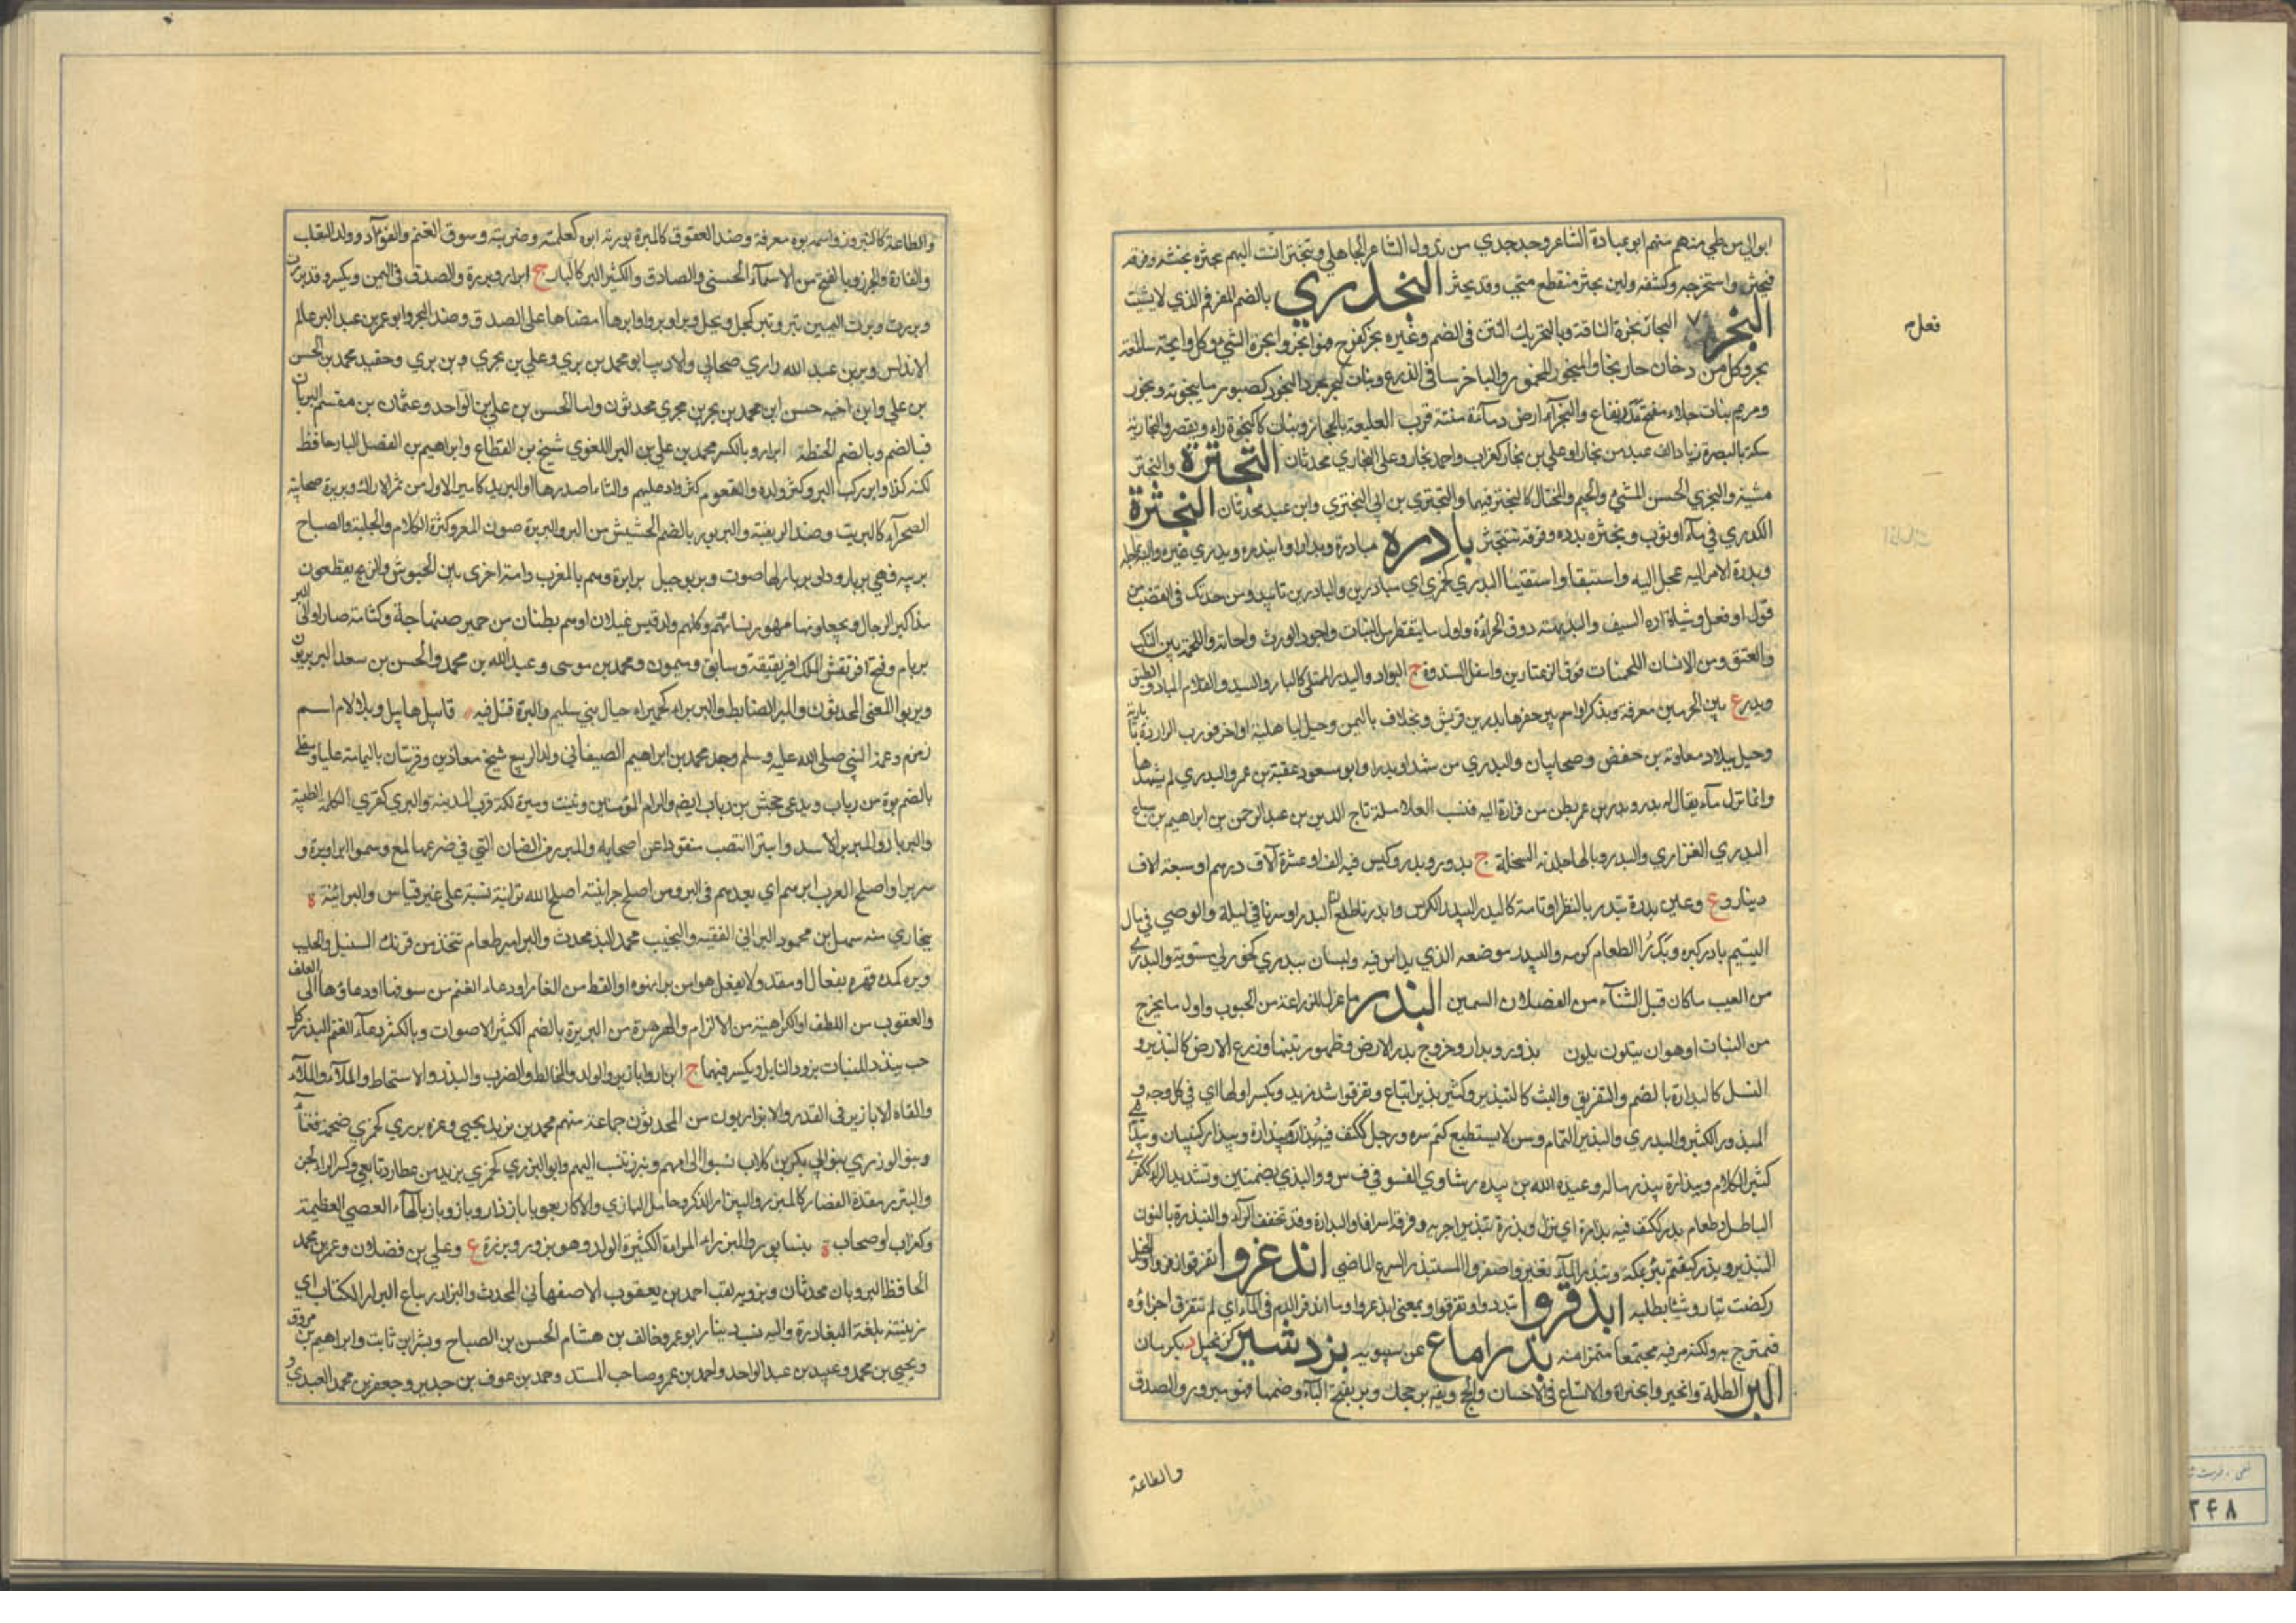 ابوالي من طي منهم منهم ابو عبادة الشاعر وجد جدي بن تدول الشاعر الجاهلي وتبحتر انتسب اليهم بحثره بحثه وفرقه
فبحثر واستخرجه وكشفه ولبن بحثر منقطع متحبب وقد بحثر البحدري بالضم المقرقم الذي لا يشب
البخر البخار بخرة الناقة وبالتحريك النتن في الفم وغيره بخر كفرح فهو ابخر وابخره الشي وكل رائحة ساطعة
بخر وكل من دخان حار بخار والمبخور المخمور والباخر ساقي الزرع وبنات بخر بحر البخور كصبور ما يتبخر به وبخور
ومريم نبات جلاء مفتح مدر نفاع والبخراء ارض وماءة منتنة قرب القليعة بالحجاز ونبات كالبخرة راه ويقصر والبخارية
سكة بالبصرة زياد الف عبد من بخارا وعلي بن بخار كغراب واحمد بخار وعلي البخاري محدثان التبختر والبختر
مشية والبختري الحسن المشي والجسم والمختال كالبختر فيهما والبختري بن ابي البختري وابن عبيد محدثان البخثرة
الكدري في ماء او ثوب وبخثره بدده وفرقه فتبخثر بادره مبادرة وبدارا وابتدره وبدري غيره واليه عاجله
وبدرة الامر اليه عجل اليه واستبقا واستقينا البدري كجمزي اي مبادرين والبادرين تانيه ومن حدتك في الغضب من
قول او فعل وشباة اره السيف والبديهة وورق الحواءة واول ما يتفطر من النبات واجود الورس واحدثه واللحمة بين المنكب
والعنق ومن الانسان اللحمتان فوق الرغثاوين واسفل الثندوة ج البوادر والبدر الممتلي كالبادر والسيد والغلام المبادر والطبق
وبدر ع بين الحرمين معرفة ويذكر او اسم بير حفرها بدر بن قريش ومخلاف باليمن وجبل لباهلة واخر قرب الواردة
وجبل ببلاد معاوية بن حفص وصحابيان والبدري من شهد بدرا وابو مسعود عقبة بن عمرو البدري لم يشهدها
وانما نزل ماء يقال له بدر وبدر بن عمر بطن من فزارة اليه نسب العلامة تاج الدين بن عبد الرحمن بن ابراهيم بن سباع
البدري الفزاري والبدر وبالهاء جلدة السخلة ج بدور وبدر وكيس فيه الف او عشرة آلاف درهم او سبعة الاف
دينار وع وعين بدرة تبدر بالنظر او تامة كالبدر البيدر الكدس وابدرنا طلع لنا البدر او سرنا في ليلة والوصي في مال
اليتيم بادر كبره وبيدر الطعام كومه والبيدر موضعه الذي يداس فيه ولسان بيدري كخوزلي مستوية والبدري
من الغيث ما كان قبل الشتاء من الفصلان السمين البذر ما عزل للزراعة من الحبوب واول ما يخرج
من النبات او هو ان يتلون بلون بذور وبذار وخروج بذر الارض وظهور نبتها وزرع الارض كالتبذير و
النسل كالبذارة بالضم والتفريق والبث كالتبذير وكثير بذير اتباع وتفرقوا شذر بذر ويكسر اولهما اي في كل وجه و
المبذور الكثير والبذري والبذير النمام ومن لا يستطيع كتم سره ورجل ككتف
كثير الكلام وبيذارة يبذر ماله وعبد الله بن بيدره شاوي الفسو في ف س و والبذري بضمتين وتشديد الراء ككفري
الباطل وطعام بذر ككتف فيه بذارة اي نزل وبذرة تبذيرا خربه وفرقه اسرافا والبذارة وقد تخفف الراء والنبذرة بالنون
التبذير وبذر كبقم بئر بمكة وتبذر الماء تغير واصفر والمستبذر المسرع الماضي ابذعروا تفرقوا وفروا والخيل
ركضت تبادر شيئا تطلبه ابذقروا تبددوا وتفرقوا وبمعني ابذعروا وما ابذقر الدم في الماء اي لم تتفرق اجزاؤه
فتمتزج به ولكنه مر فيه مجتمعا متميزا منه بذراماع عن سيبويه بزدشير كزنجبيل د بكرمان
البر الصلة والخير والجنة والاتساع في الاحسان والحج ويقال بر حجك وبر بفتح الباء وضمها فهو مبرور والصدق
والطاعة
فعل ح
والطاعة كالتبرور واسمه بره معرفة وضد العقوق كالمبرة بررته ابره كعلمته وضربته وسوق الغنم والفؤاد وولد الثعلب
والفارة والجرذ وبالفتح من الاسماء الحسني والصادق والكثير البر كالبار ج ابرار وبررة والصدق في اليمين ويكسر وقد بررت
وبررت وبرت اليمين تبر وتبر كيمل ويحل وبرا وبرورا وابرها امضاها علي الصدق وضد البحر وابو عمر بن عبد البر عالم
الاندلس وبر بن عبد الله داري صحابي والاديب ابو محمد بن بري وعلي بن بحري وبن بري وحفيد محمد بن الحسن
بن علي وابن اخيه حسن ابن محمد بن بحر بن بحري محدثون واما الحسن بن علي بن الواحد وعثمان بن مقسم البريان
فبالضم وبالضم الحنطة ابرار وبالكسر محمد بن علي بن البر اللغوي شيخ بن القطاع وابراهيم بن الفضل البار حافظ
لكنه كذاب وابر ركب البر وكثر ولده والقوم كثروا وعليهم والشاء اصدرها والبرير كامير الاول من ثمر الاراك وبريرة صحابية
الصحراء كالبريت وضد الريفية والبربور بالضم الجشيش من البر والبربرة صوت المعز وكثرة الكلام والجلبة والصياح
بربر فهي بربار ودلو بربار لها صوت وبربر جيل برابرة وهم بالمغرب وامة اخري بين الحبوش والزنج يقطعون
مذاكير الرجال ويجعلونها مهور نسائهم وكلهم ولد قيس عيلان او هم بطنان من حمير صنهاجة وكتامة صاروا الي البربر
بربام وفتح افريقش الملك افريقية وسابق وميمون ومحمد بن موسي وعبد الله بن محمد والحسن بن سعد البربريون
وبربر المغني المحدثون والمبر الضابط والبر براء كحميراء جبال بني سليم والبرة قتل فيه قابيل هابيل وبلا لام اسم
زمزم وعمة النبي صلي الله عليه وسلم وجد محمد بن ابراهيم الصنعاني ولد الربيع شيخ معاذ بن وقريتان باليمامة عليا وسفلي
بالضم برة من رباب ويدعي جحش بن رباب ايضم والد ام المؤمنين وبنت ومبرة لكة قرب المدينة والبري كقري الكلمة الطيبة
والبربار والمبربر الاسد وابتر انتصب منفردا عن اصحابه والمبرر من الضان التي في ضرعها لمع وسموا برا وبرة و
بريرا واصلح العرب ابرهم اي ابعدهم في البر ومن اصلح جوانيه اصلح الله برانيه نسبة علي غير قياس والبرانية ة
ببخاري منه سهل بن محمود البراني الفقيه والنجيب محمد البذ محدث والبرابير طعام تتخذ من فريك السنبل والحليب
وبره كمده قهره بفعال او مقال ولا يعرف هرا من بر اي هره او القط من الفار او دعاء الغنم من سوقها او دعاؤها الي العلف
والعقوق من اللطف او الكراهية من الاكرام والهرهرة من البربرة بالضم الكثير الاصوات وبالكسر دعاء الغنم البزر كل
حب يبذر للنبات بزور والتابل ويكسر فيهما ج ابزار وابازير والولد والمخاط والضرب والبذر والامتخاط والملء
والقاء الابازير في القدر والابزاريون من المحدثون جماعة منهم محمد بن يزيد يحيي وعزة بزري كجمزي ضخمة قعساء
وبنو البزري بنو ابي بكر بن كلاب نسبوا الي امهم وتبزر تنسب اليهم وابو البزري كجمزي يزيد بن عطارد تابعي وكسر الراء لحن
والبيزر مدقة القصار كالمبزر والبيزار الذكر وحامل البازي والاكار بعربا بازدار وبازيار وبالهاء العصي العظيمة
وكغراب او صحاب ة بنيسابور والمبزراء المراة الكثيرة الولد وهو بزور وبزرة ع وعلي بن فضلان وعمر بن محمد
الحافظ البزوريان محدثان وبزرويه لقب احمد بن يعقوب الاصفهاني المحدث والبزار بياع البزر الكتان اي
زيتنه بلغة البغادرة واليه نسب دينار ابو عمر وخالف بن هشام الحسن بن الصباح وبشر بن ثابت وابراهيم بن مرزوق
ويحيي بن محمد وعبيد بن عبد الواحد واحمد بن عمرو صاحب المسند وحمد بن عوف بن جدير وجعفر بن محمد العبدي و
۲۴۸